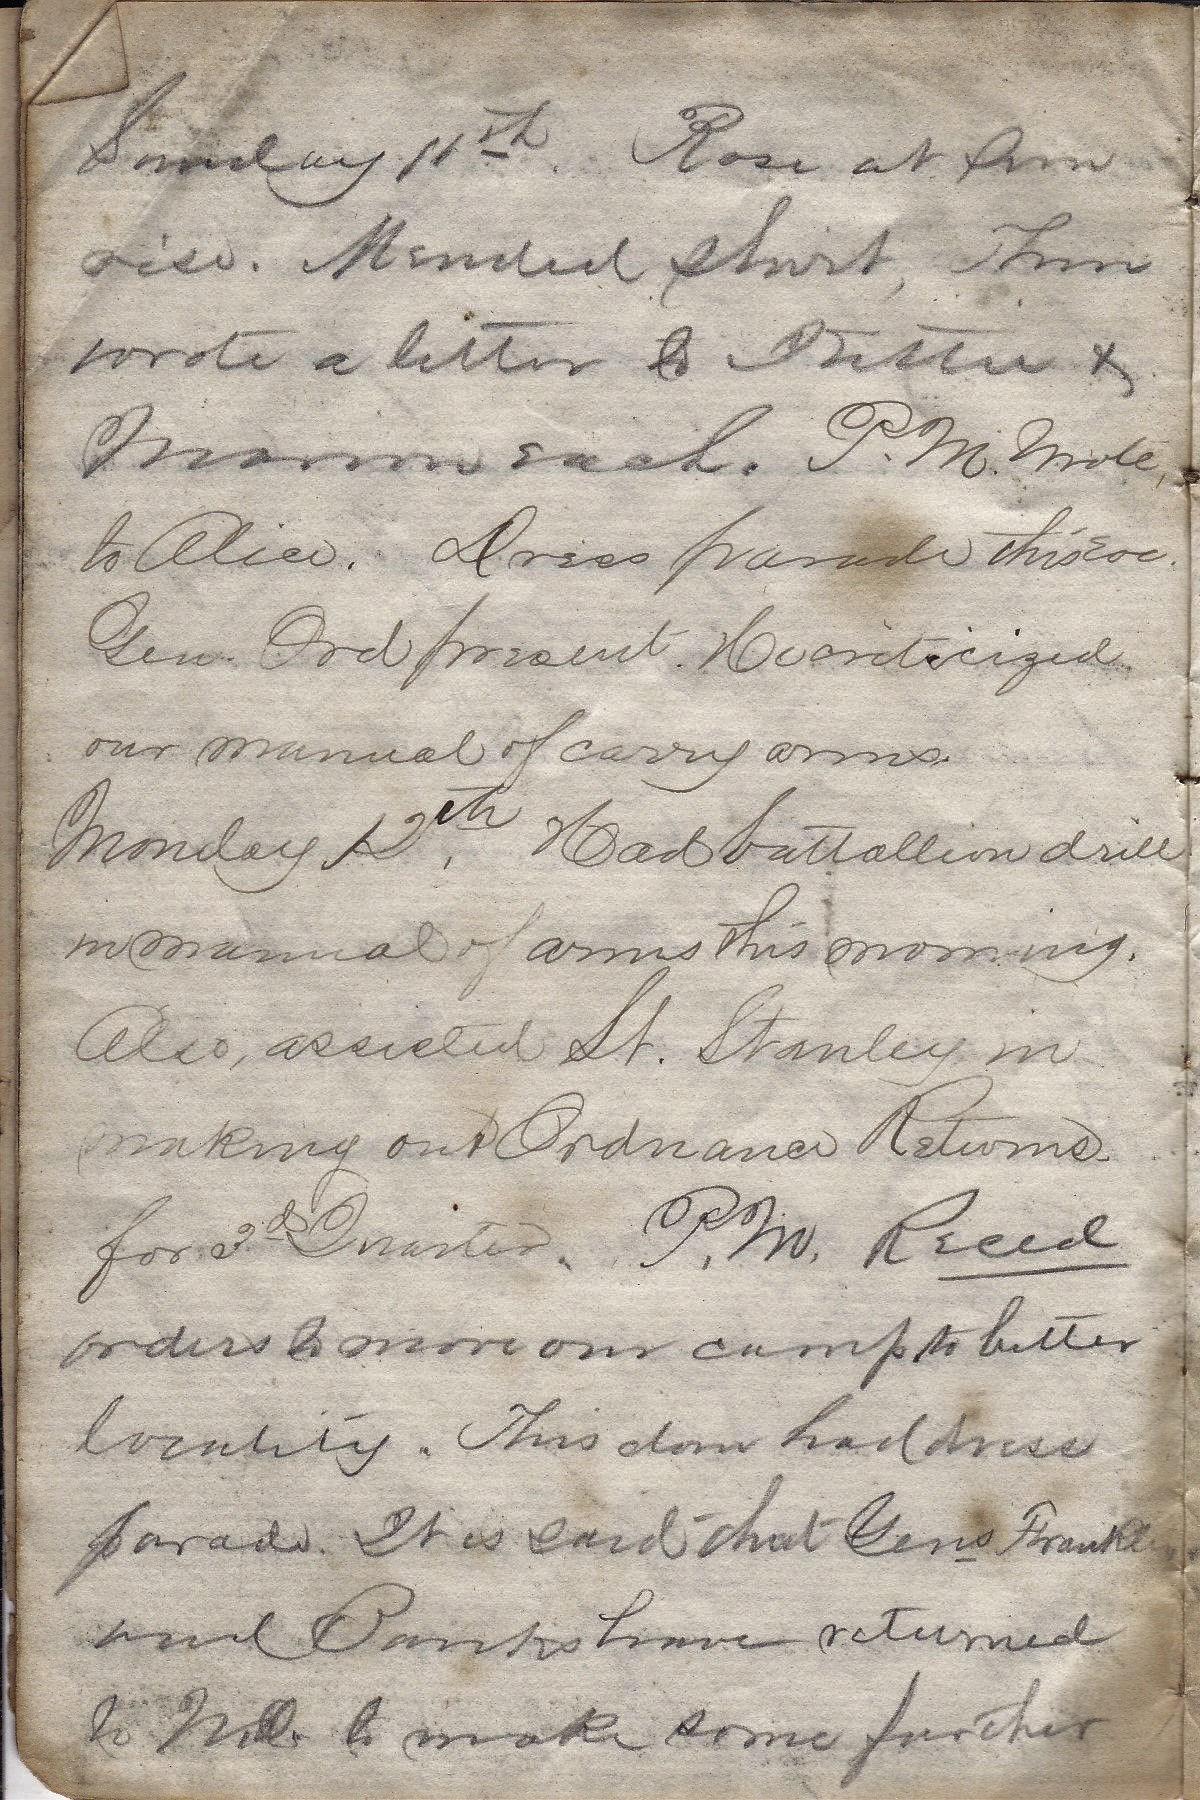 Sunday 11th. Rose at Sun
rise. Mended shirt, Then
wrote a letter to Nettie &
Marion each. P.M. Wrote,
to Alice. Dress parade this eve.
Gen. Ord present. He criticized
our manual of carry arms.
Monday 12th. Had battallion drill
in manual of arms this morning.
Also, assisted Lt. Stanley in
making out Ordnance Returns.
for 2d Quarter. P.M. Reced
orders to move our camp to better
locality. This done had dress
parade. It is said that Gens Franklin
and Banks have returned
to N.O. to make some further